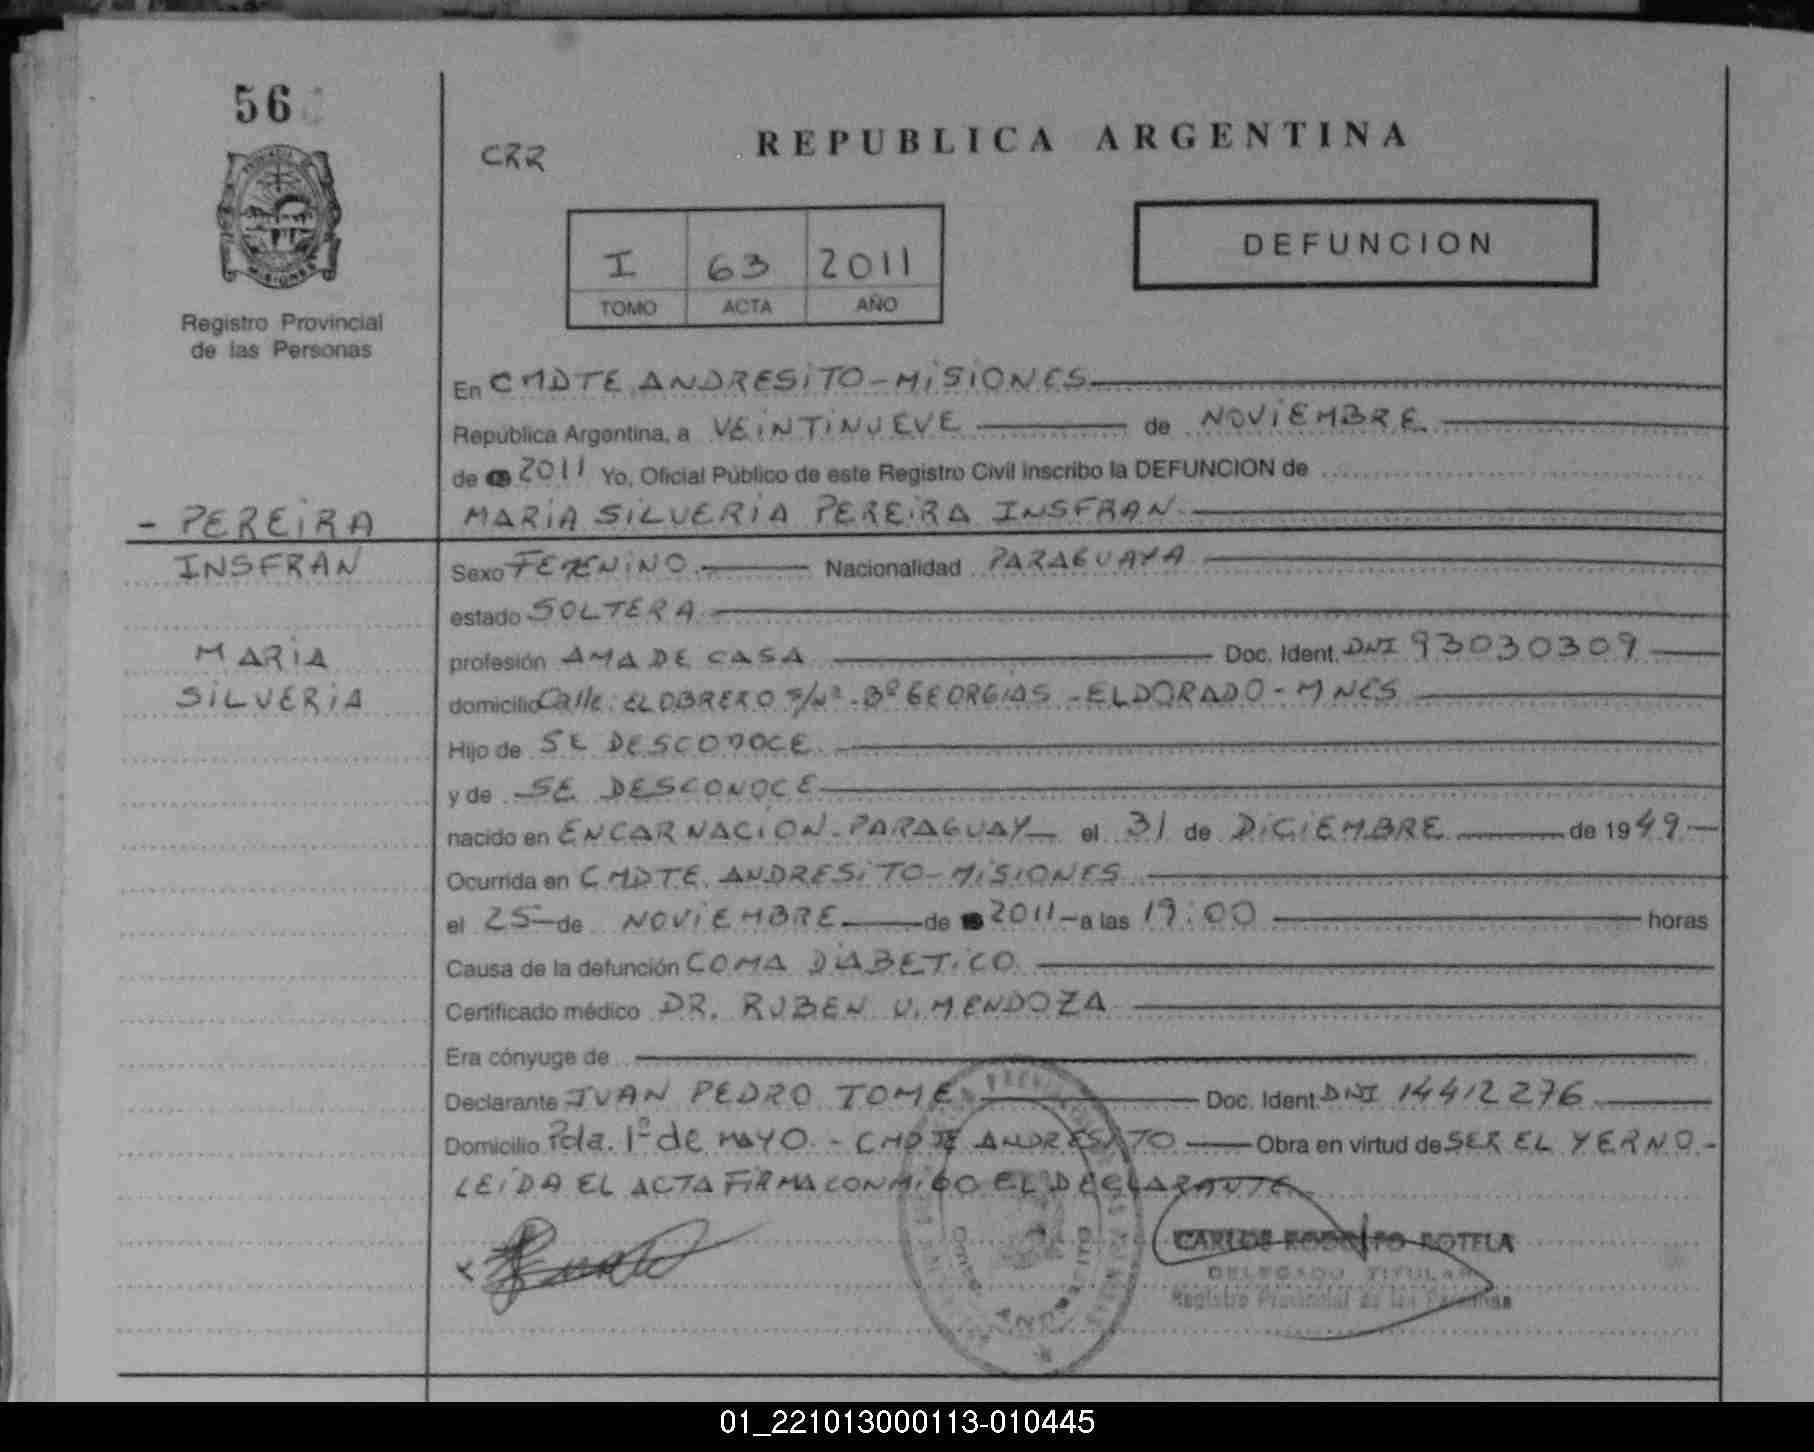 56
CRR
REPUBLICA ARGENTINA
MISIONES
I 63 2011
TOMO ACTA AÑO
DEFUNCION
Registro Provincial
de las Personas
En CMDTE ANDRESITO - MISIONES
República Argentina, a VEINTINUEVE de NOVIEMBRE
de 2011 Yo, Oficial Público de este Registro Civil inscribo la DEFUNCION de
MARIA SILVERIA PEREIRA INSFRAN
- PEREIRA
INSFRAN
MARIA
SILVERIA
Sexo FEMENINO Nacionalidad PARAGUAYA
estado SOLTERA
profesión AMA DE CASA Doc. Ident. DNI 93030309
domicilio Calle EL OBRERO S/Nº - Bº GEORGIAS - ELDORADO - MNES
Hijo de SE DESCONOCE
y de SE DESCONOCE
nacido en ENCARNACION - PARAGUAY el 31 de DICIEMBRE de 1949
Ocurrida en CMDTE ANDRESITO - MISIONES
el 25 de NOVIEMBRE de 2011 a las 19:00 horas
Causa de la defunción COMA DIABETICO
Certificado médico DR. RUBEN U. MENDOZA
Era cónyuge de
Declarante JUAN PEDRO TOME Doc. Ident DNI 14412276
Domicilio Pda. 1º de MAYO - CMDTE ANDRESITO Obra en virtud de SER EL YERNO -
LEIDA EL ACTA FIRMA CONMIGO EL DECLARANTE
CARLOS RODOLFO ROTELA
DELEGADO TITULAR
Registro Provincial de las Personas
01_221013000113-010445